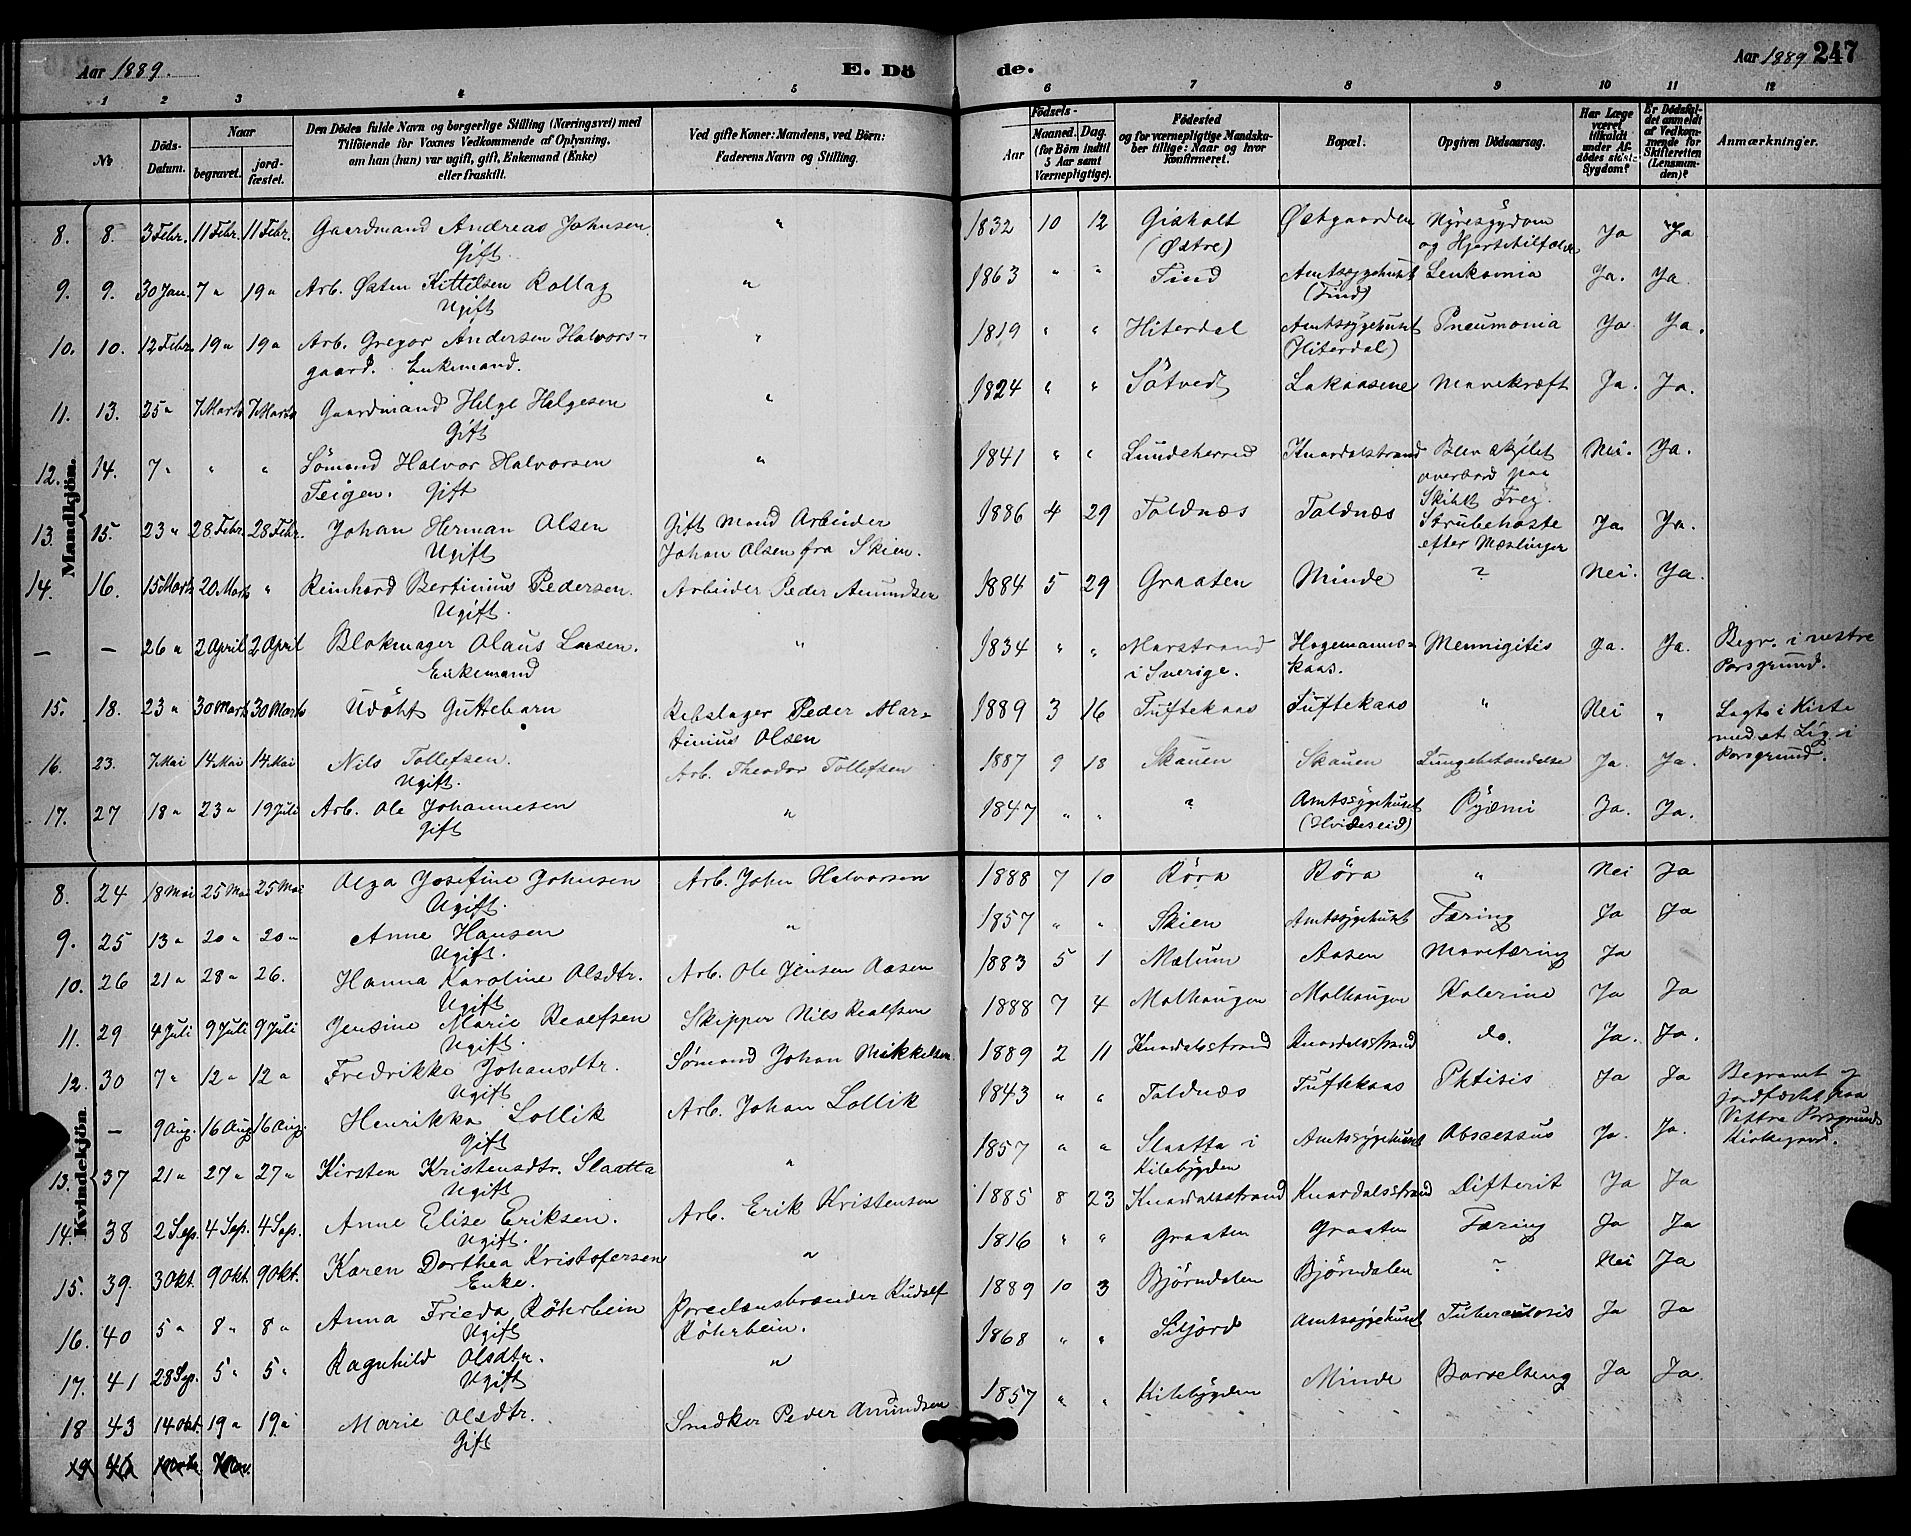 Aar 1889. E. Dö de. Aar 1889 247
1 2 3 4 5 6 7 8 9 10 11 12
No
Döds-Datum.
Naar
begravet.
jordfæstet.
Den Dödes fulde Navn og borgerlige Stilling (Næringsvei) med
Tilföiende for Voxnes Vedkommende af Oplysning,
om han (hun) var ugift, gift, Enkemand (Enke)
eller fraskilt.
Ved gifte Koner: Mandens, ved Börn:
Faderens Navn og Stilling.
Födsels-
Aar
Maaned. Dag.
(for Börn indtil
5 Aar samt
Værnepligtige).
Födested
og for værnepligtige Mandska-
ber tillige: Naar og hvor
Konfirmeret.
Bopæl.
Opgiven Dödsaarsag.
Har Læge
været
tilkaldt
under Af-
dödes sidste
Sygdom?
Er Dödsfal-
det anmeldt
af Vedkom-
mende for
Skifteretten
(Lensman-
den)?
Anmærkninger.
Mandkjön.
8. 8. 3 Febr. 11 Febr. 11 Febr. Gaardmand Andreas Johnsen. " 1832 10 12 Gisholt Østgaarden Nyresygdom Ja Ja
Gift. (Østre) og Hjertetilfælde
9. 9. 30 Jan. 7 " 19 " Arb. Østen Kittilsen Rollag " 1863 " " Tind Amtssygehuset Leukæmia Ja. Ja
Ugift (Tind)
10. 10. 12 Febr. 19 " 19 " Arb. Gregor Andersen Halvors- " 1819 " " Hiterdal Amtssygehuset Pneumonia Ja Ja.
gaard. Enkemand. (Hiterdal)
11. 13. 25 " 7 Marts 7 Marts Gaardmand Helge Helgesen " 1824 " " Sötvedt Lakaasene Mavekræft Ja. Ja.
Gift
12. 14. 7 " " " Sömand Halvor Halvorsen " 1841 " " Lundeherred Knardalstrand Blev skyllet Nei. Ja.
Teigen. Gift overbord paa
Skibet Frey.
13. 15. 23 " 28 Febr. 28 Febr. Johan Herman Olsen Gift Mand Arbeider 1886 4 29 Toldnæs Toldnæs Strubehoste Ja. Ja.
Ugift Johan Olsen fra Skien. efter Mæslinger
14. 16. 15 Marts 20 Marts " Reinhard Bertinius Pedersen. Arbeider Peder Amundsen 1884 5 29 Graaten Minde ? Nei. Ja.
Ugift.
— — 26 " 2 April 2 April Blokmager Olaus Larsen. " 1834 " " Marstrand Hagemanns- Mennigitis Ja. Ja. Begr. i vestre
Enkemand i Sverige. kaas. Porsgrund.
15. 18. 23 " 30 Marts 30 Marts Udöbt Guttebarn Rebslager Peder Mar- 1889 3 16 Tuftekaas Tuftekaas " Nei " Lagt i Kiste
tinius Olsen med et Lig i
16. 23. 7 Mai 14 Mai 14 Mai Nils Tollefsen. Arb. Theodor Tollefsen 1887 9 18 Skauen Skauen Lungebetændelse Ja. Ja. Porsgrund.
Ugift.
17. 27 18 " 23 " 19 Juli Arb. Ole Johannesen " 1847 " " ? Amtssygehuset Pyæmi Ja. Ja.
Gift (Hvideseid)
Kvindekjön.
8. 24 18 Mai 25 Mai 25 Mai Olga Josefine Johnsen Arb. John Halvorsen 1888 7 10 Röra Röra " Nei Ja
Ugift.
9. 25 13 " 20 " 20 " Anne Hansen " 1857 " " Skien Amtssygehuset Tæring Ja Ja
Ugift.
10. 26 21 " 28 " 26. Hanna Karoline Olsdtr. Arb. Ole Jensen Aasen 1883 5 1 Mælum Aasen Mavetæring Ja
Ugift
11. 29 4 Juli 9 Juli 9 Juli Jensine Marie Realfsen Skipper Nils Realfsen 1888 7 4 Molhaugen Molhaugen Kolerine Ja Ja
Ugift.
12. 30 7 " 12 " 12 " Fredrikke Johansdtr. Sømand Johan Mikkelsen 1889 2 11 Knardalsstrand Knardalsstrand do. Ja. Ja.
Ugift
— 9 Aug. 16 Aug. 16 Aug. Henrikka Lollik Arb. Johan Lollik 1843 " " Toldnæs Tuftekaas Phtisis Ja Ja Begravet og
Gift jordfæstet paa
Vestre Porsgrunds
Kirkegaard.
13. 37 21 " 27 " 27 " Kirsten Kristensdtr. Slaatta " 1857 " " Slaatta i Amtssygehuset Abscessus Ja. Ja.
Ugift Kilebygden
14. 38 2 Sep. 4 Sep. 4 Sep. Anne Elise Eriksen. Arb. Erik Kristensen 1885 8 23 Knardalsstrand Knardalsstrand Difterit Ja Ja
Ugift.
15. 39. 3 Okt. 9 Okt. 9 Okt. Karen Dorthea Kristofersen " 1816 " " Graaten Graaten Tæring Ja Ja
Enke.
16. 40 5 " 8 " 8 " Anna Frieda Röhrbein Porcelænsbrænder Rudolf 1889 10 3 Björndalen Björndalen ? Nei Ja
Ugift Röhrbein.
17. 41 28 Sep. 5 " 5 " Ragnhild Olsdtr. " 1868 " " Siljord Amtssygehuset Tuberculosis Ja Ja
Ugift
18 43 14 Okt. 19 " 19 " Marie Olsdtr. Snedker Peder Amundsen 1857 " " Kilebygden Minde Barselseng Ja Ja.
Gift
19 46